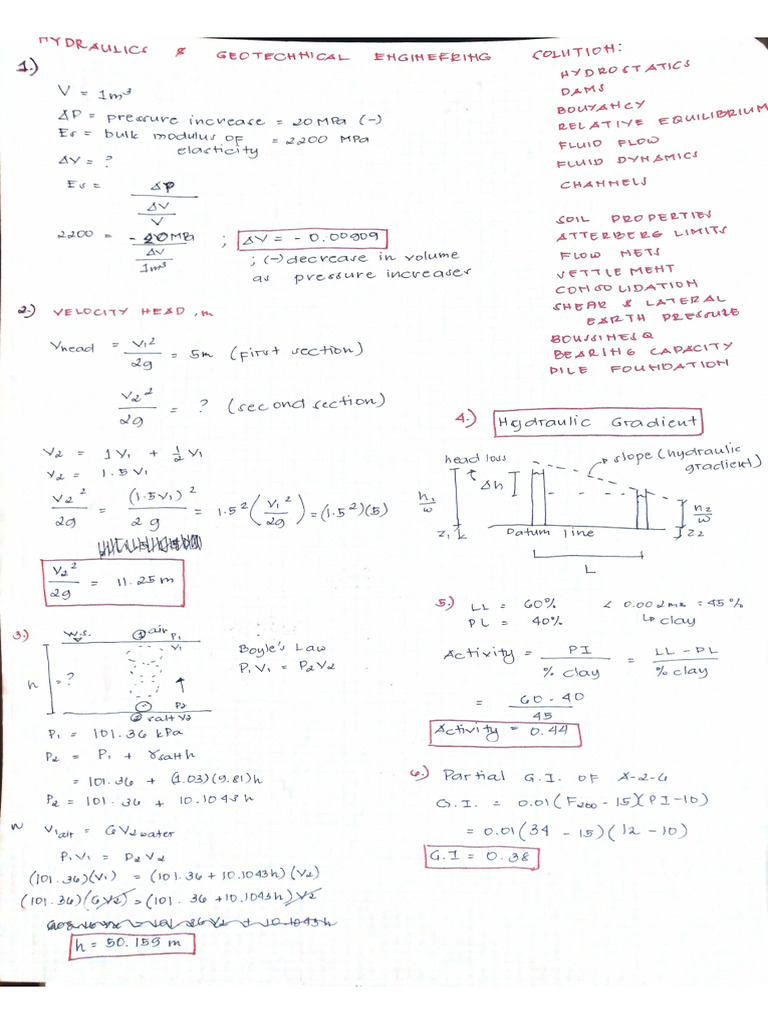 HYDRAULICS & GEOTECHNICAL ENGINEERING SOLUTION:
HYDROSTATICS
DAMS
BOUYANCY
RELATIVE EQUILIBRIUM
FLUID FLOW
FLUID DYNAMICS
CHANNELS
SOIL PROPERTIES
ATTERBERG LIMITS
FLOW NETS
VETTLEMENT
CONSOLIDATION
SHEAR & LATERAL
EARTH PRESSURE
BOUSSINESQ
BEARING CAPACITY
PILE FOUNDATION
1.)
V = 1m³
ΔP = pressure increase = 20 MPa (-)
Es = bulk modulus of = 2200 MPa
elasticity
ΔV = ?
Es = ΔP
ΔV
V
2200 = - 20 MPa ; ΔV = - 0.00909
ΔV
1m³
; (-) decrease in volume
as pressure increases
2.) VELOCITY HEAD, m
Vhead = V₁² / 2g = 5m (first section)
V₂² / 2g = ? (second section)
V₂ = 1 V₁ + ½ V₁
V₂ = 1.5 V₁
V₂² / 2g = (1.5V₁)² / 2g = 1.5² (V₁² / 2g) = (1.5²)(5)
V₂² / 2g = 11.25 m
3.) W.S. ① air P₁
V₁
h = ?
P₂
② salt V₂
Boyle's Law
P₁V₁ = P₂V₂
P₁ = 101.36 kPa
P₂ = P₁ + γsalt h
= 101.36 + (1.03)(9.81)h
P₂ = 101.36 + 10.1043h
V₁air = 6V₂water
P₁V₁ = P₂V₂
(101.36)(V₁) = (101.36 + 10.1043h)(V₂)
(101.36)(6V₂) = (101.36 + 10.1043h)V₂
h = 50.159 m
4.) Hydraulic Gradient
head loss
slope (hydraulic
gradient)
Δh
h₁
w
h₂
w
z₁
Datum line
z₂
L
5.) LL = 60% < 0.002mm = 45%
PL = 40% ↳ clay
Activity = PI / % clay = LL - PL / % clay
= 60 - 40 / 45
Activity = 0.44
6.) Partial G.I. OF A-2-6
G.I. = 0.01(F₂₀₀ - 15)(PI - 10)
= 0.01(34 - 15)(12 - 10)
G.I = 0.38